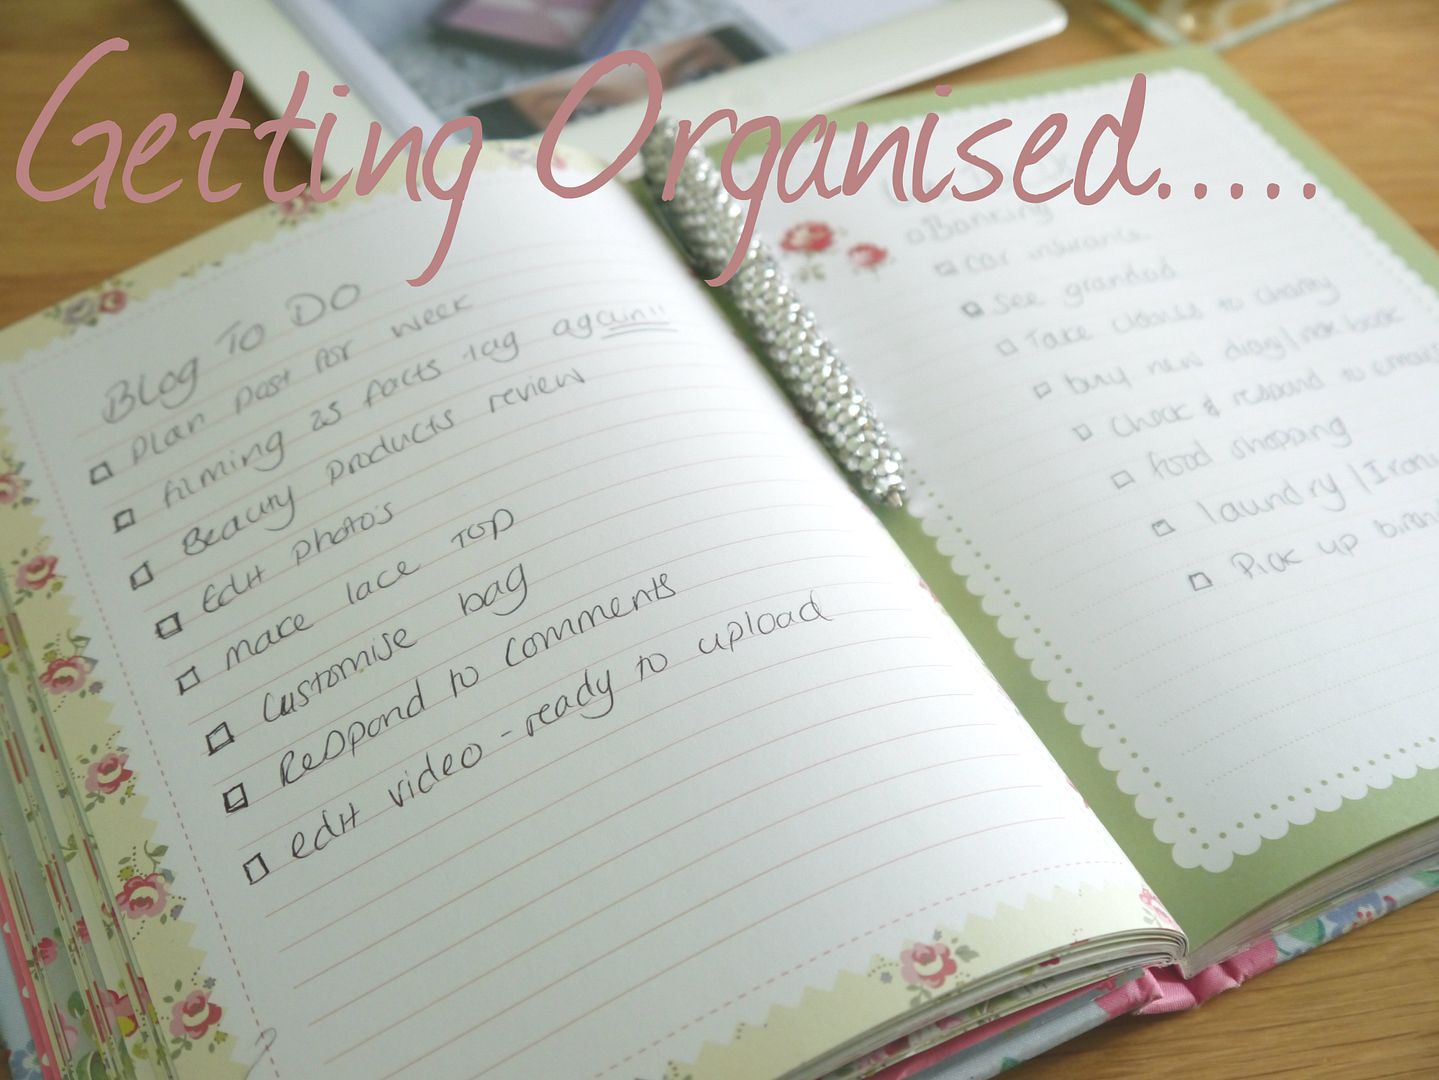 Getting Organised.....
Blog To Do
Plan post for week
filming 25 facts tag again!!
Beauty products review
Edit photo's
make lace top
Customise bag
Respond to comments
edit video - ready to upload
Banking
car insurance
see grandad
Take clothes to charity
buy new diary/note book
Check & respond to emails
food shopping
laundry/Ironi
Pick up